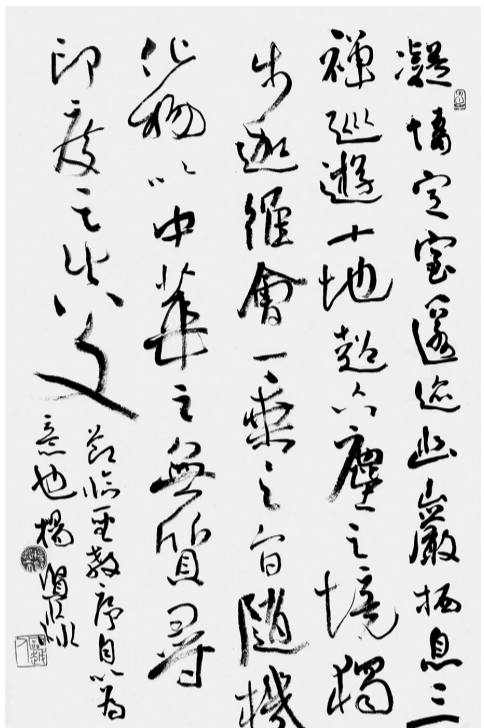 凝情定室匿迹幽巖栖息三
禪巡遊十地超六塵之境獨
步迦維會一乘之旨隨機
化物以中華之無質尋
印度之真文
節臨聖教序自以為
意也楊